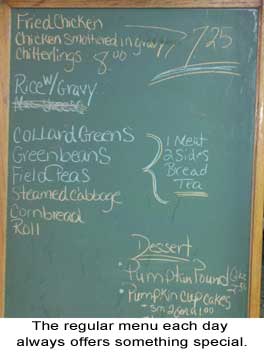 Fried Chicken
Chicken Smothered in gravy 7.25
Chitterlings 8.00
Rice w/ Gravy
Collard Greens
Green beans
Field Peas
Steamed Cabbage
Cornbread
Roll
1 Meat
2 Sides
Bread
Tea
Dessert
• Pumpkin Pound Cake
• Pumpkin Cup cakes
The regular menu each day
always offers something special.